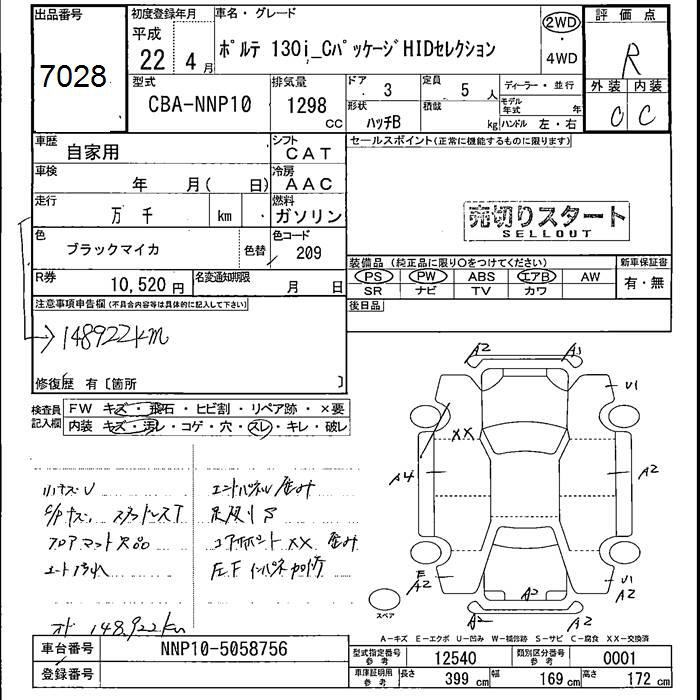 出品番号
7028
初度登録年月
平成
22 4 月
車名・グレード
ポルテ 130i_CパッケージHIDセレクション
2WD
・
4WD
評価点
R
外装 内装
C C
型式
CBA-NNP10
排気量
1298
CC
ドア 3
形状
ハッチB
定員 5 人
積載 kg
ディーラー・並行
モデル年式 年
ハンドル 左・右
車歴
自家用
シフト
CAT
車検
年 月( 日)
冷房
AAC
走行
万 千 km
燃料
ガソリン
色
ブラックマイカ
色替
色コード
209
R券
10,520 円
名変通知期限
月 日
セールスポイント(正常に機能するものに限ります)
売切りスタート
SELLOUT
装備品 (純正品に限り○をつけてください)
PS PW ABS エアB AW
SR ナビ TV カワ
新車保証書
有・無
後日品
注意事項申告欄(不具合内容等は具体的に記入して下さい)
148922km
修復歴 有〔箇所 〕
検査員
記入欄
FW キズ・飛石・ヒビ割・リペア跡・×要
内装 キズ・汚レ・コゲ・穴・スレ・キレ・破レ
148,922km
A2 A1
U1
XX
A4
A2
E
A2
U1
A2
A2
A2 A2
スペア
A-キズ E-エクボ U-凹み W-補修跡 S-サビ C-腐食 XX-交換済
車台番号
NNP10-5058756
登録番号
型式指定番号
参考
12540
類別区分番号
参考
0001
車庫証明用
参考
長さ 399 cm
幅 169 cm
高さ 172 cm